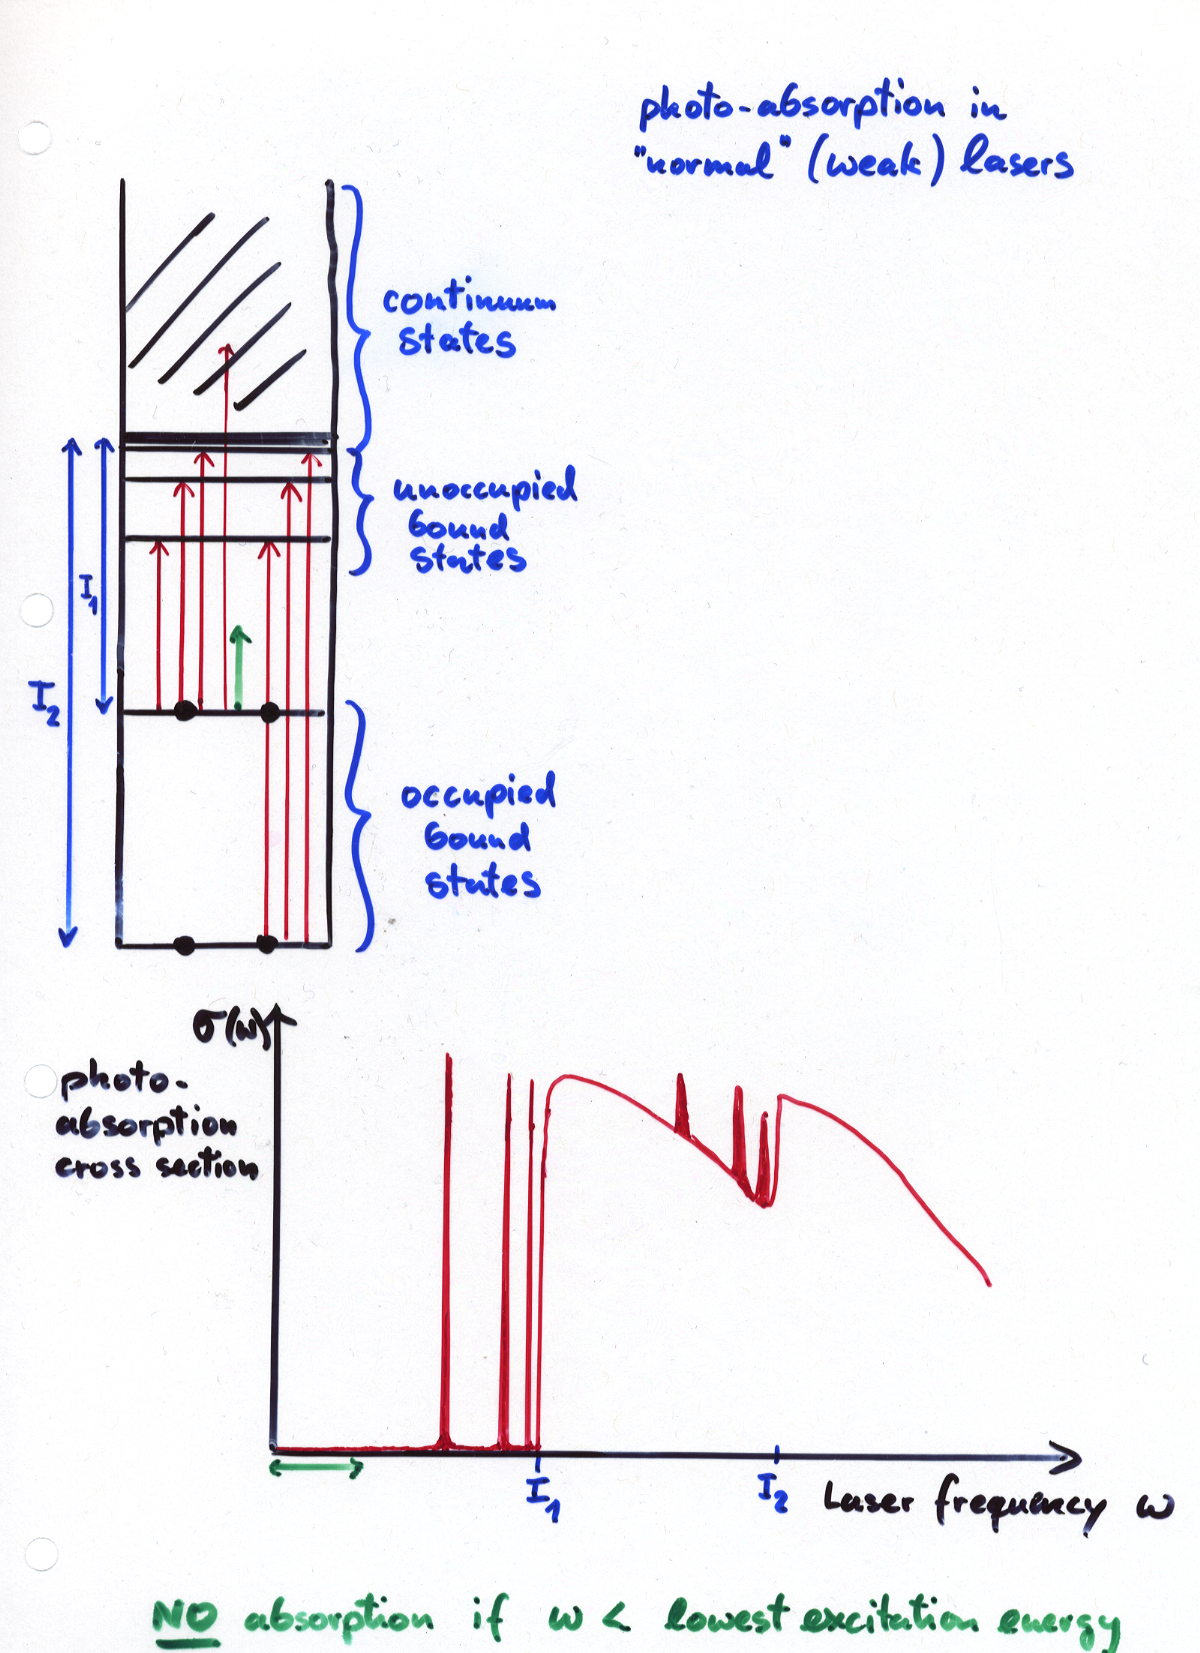 photo-absorption in
"normal" (weak) lasers
continuum
states
unoccupied
bound
states
I₁
I₂
occupied
bound
states
σ(ω)
photo-
absorption
cross section
I₁
I₂
Laser frequency ω
NO absorption if ω < lowest excitation energy